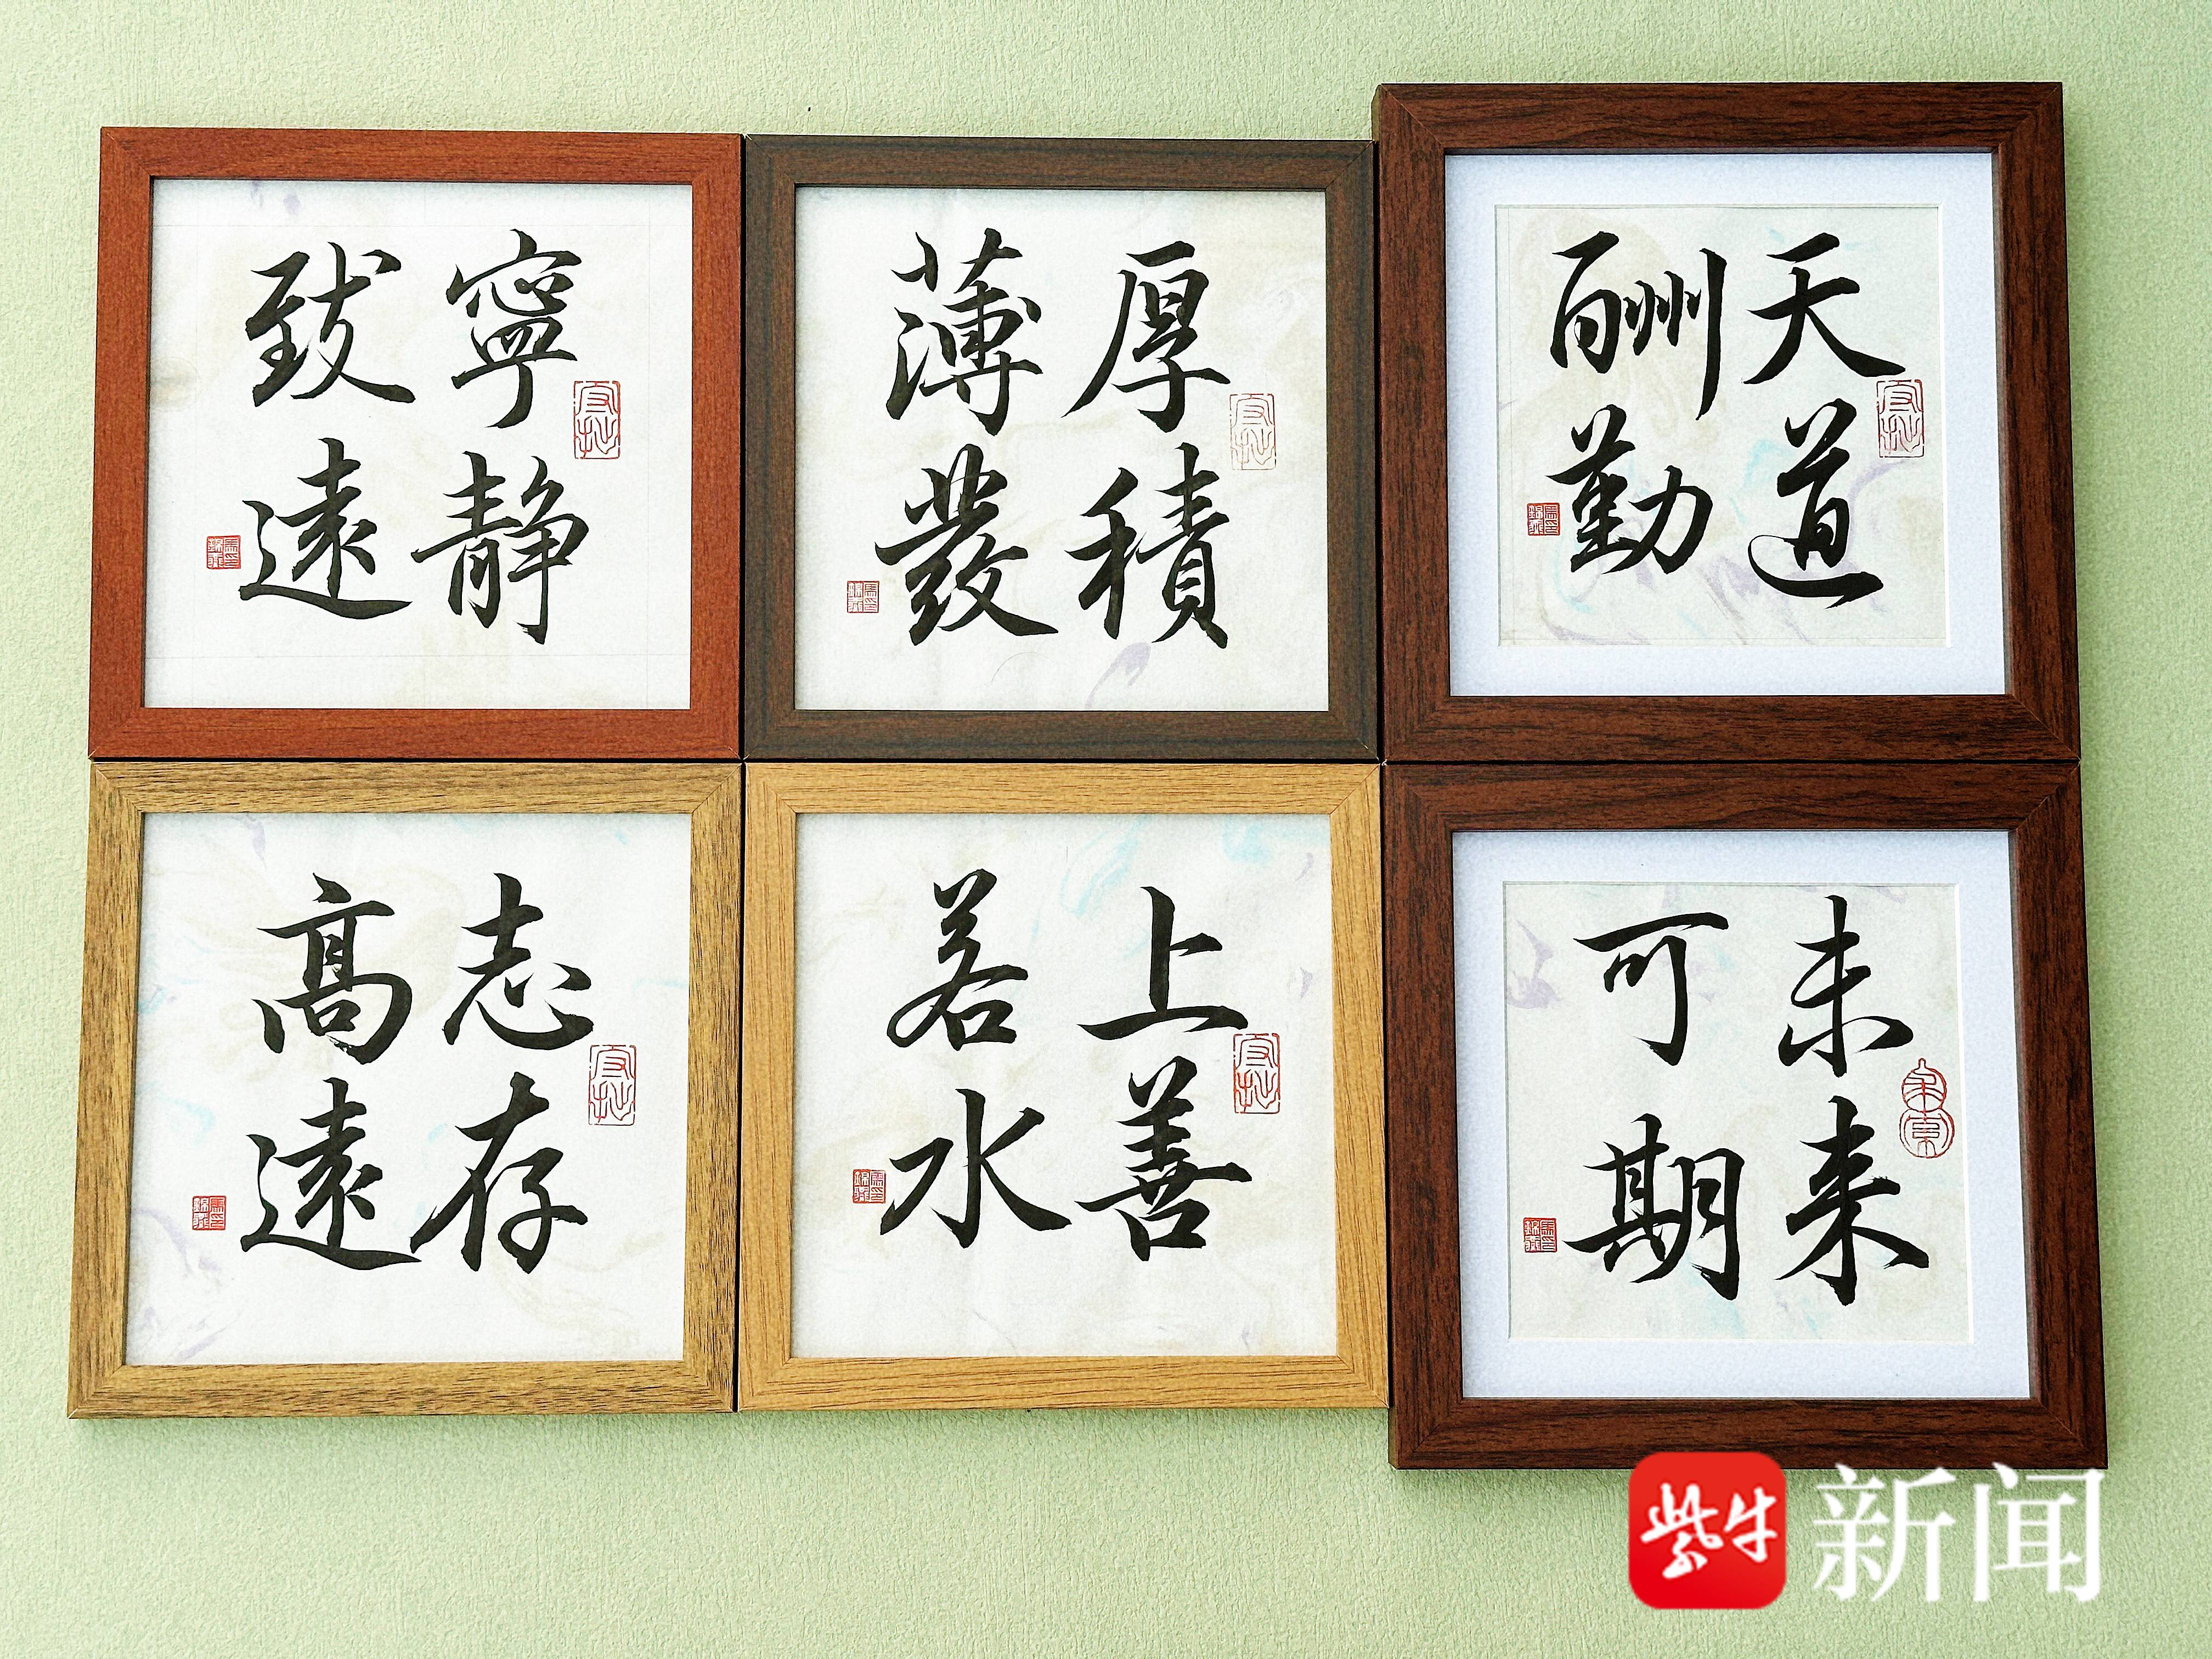 寧静
致遠
厚積
薄發
天道
酬勤
志存
高遠
上善
若水
未来
可期
紫牛新闻